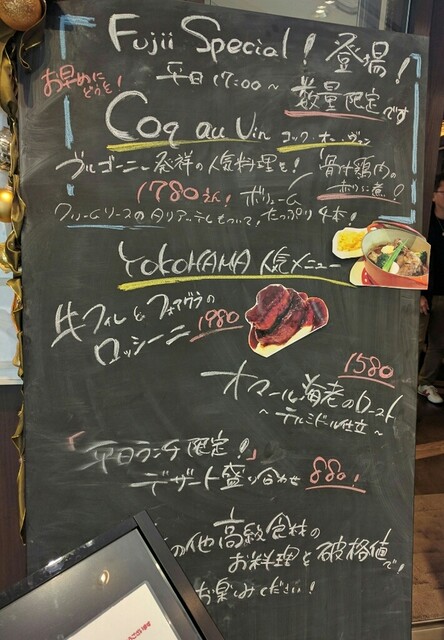 Fujii Special! 登場!
お早めにどうぞ!
平日 17:00～ 数量限定です
Coq au Vin コック・オー・ヴァン
ブルゴーニュ発祥の人気料理を!
骨付鶏肉の
1780
ボリューム
クリームソースのタリアッテレもついて、たっぷり
YOKOHAMA 人気メニュー
牛フィレとフォアグラの
ロッシーニ 1980
1580
オマール海老のロースト
～テルミドール仕立～
「平日ランチ限定!」
デザート盛り合わせ 880!
の他高級食材の
お料理を破格値で!
お楽しみください!